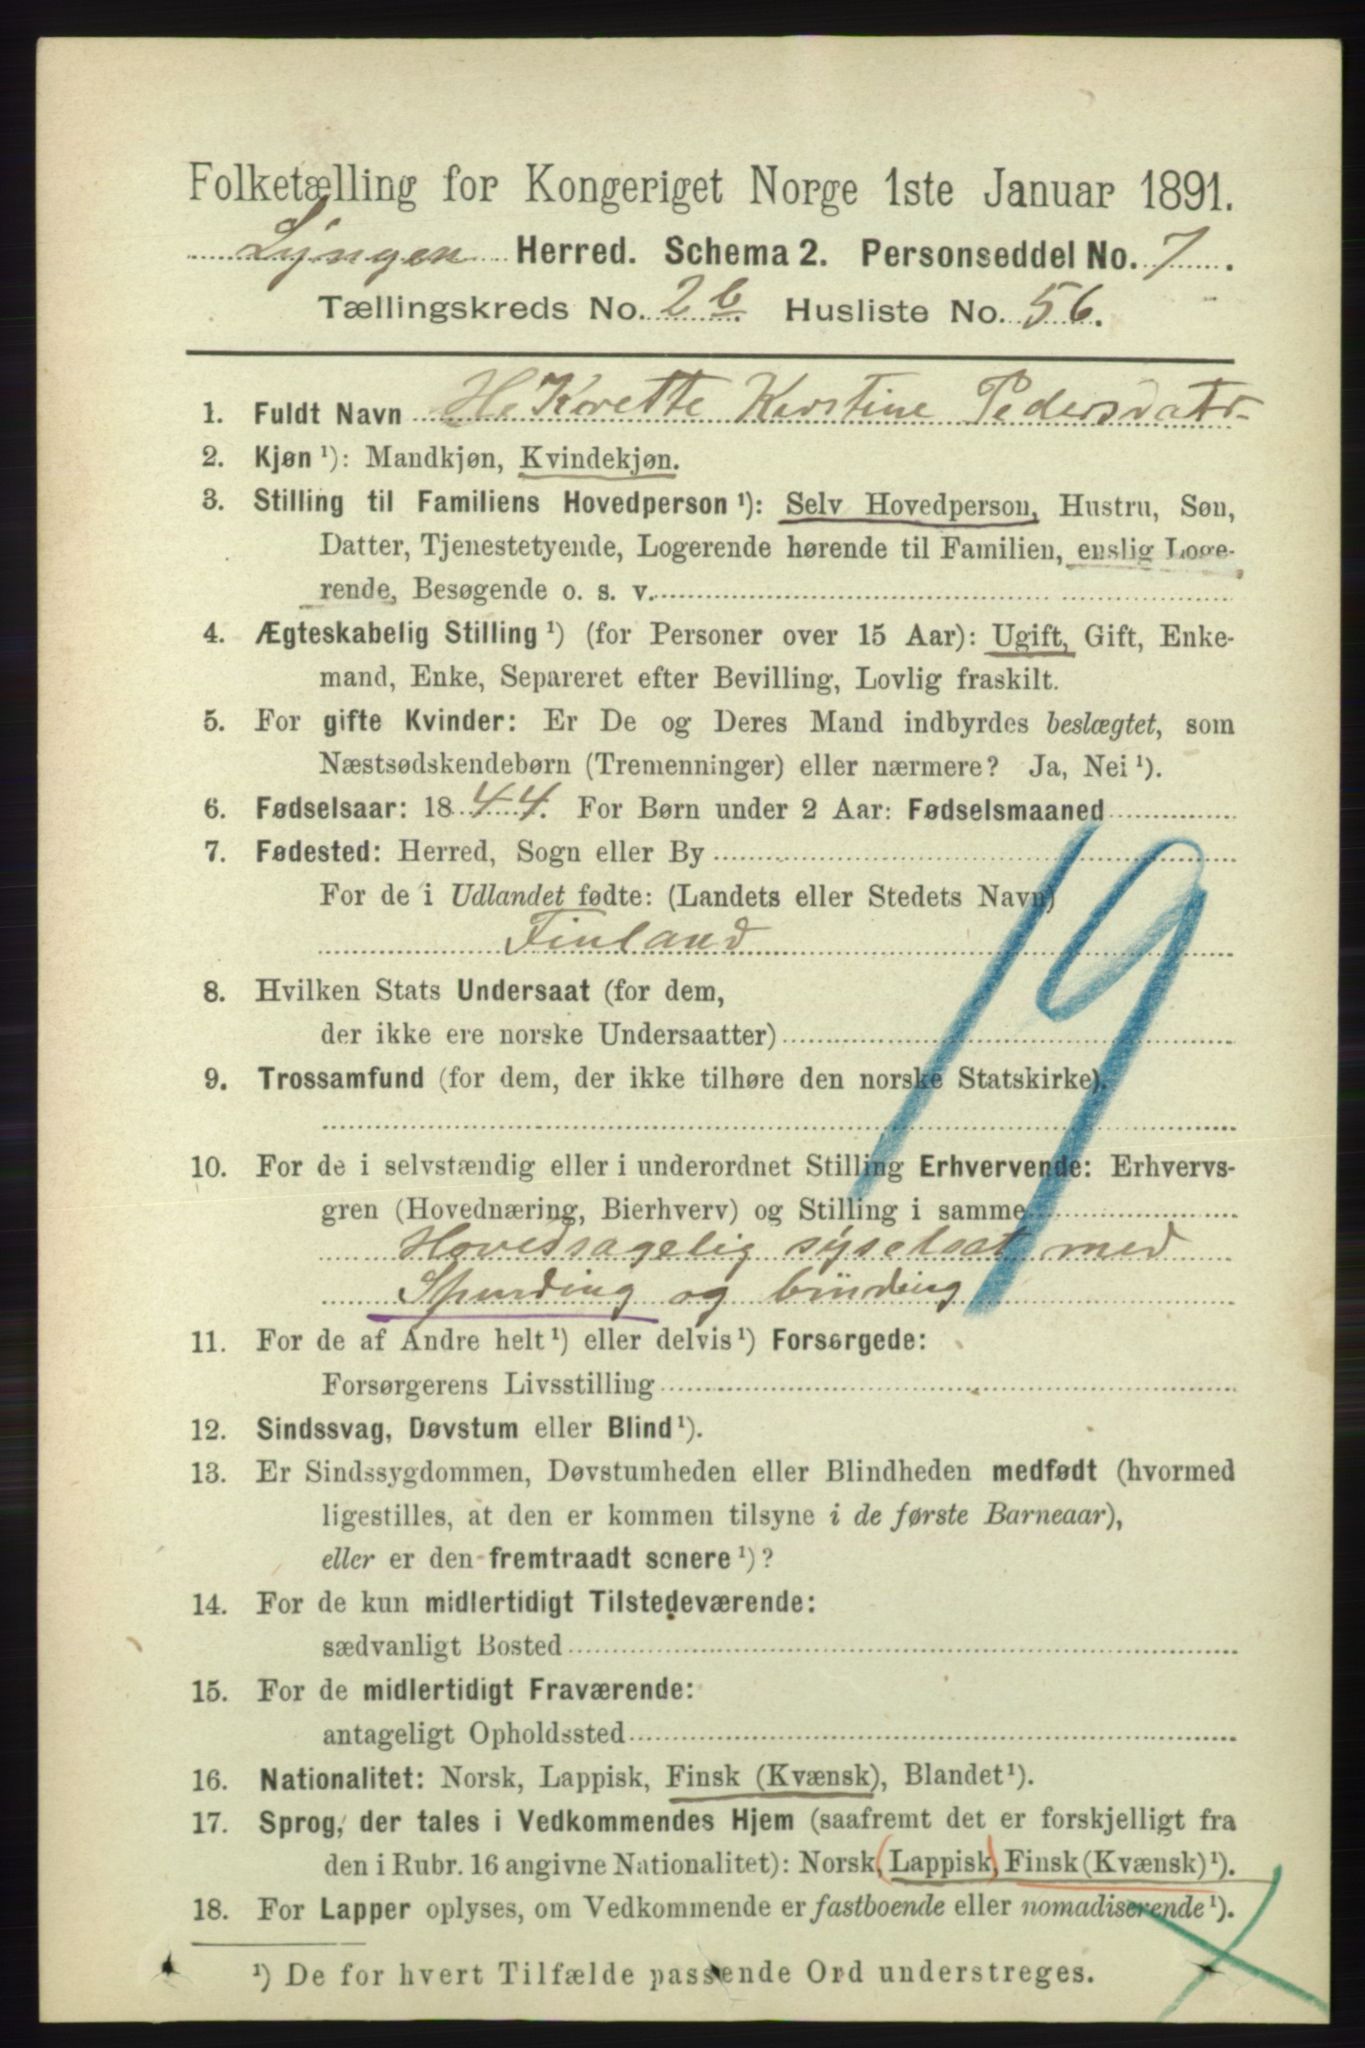 Folketælling for Kongeriget Norge 1ste Januar 1891.
Lyngen Herred. Schema 2. Personseddel No. 7.
Tællingskreds No. 2b. Husliste No. 56.
1. Fuldt Navn Kerstine Pedersdatr
2. Kjøn ¹): Mandkjøn, Kvindekjøn.
3. Stilling til Familiens Hovedperson ¹): Selv Hovedperson, Hustru, Søn,
Datter, Tjenestetyende, Logerende hørende til Familien, enslig Loge-
rende, Besøgende o. s. v.
4. Ægteskabelig Stilling ¹) (for Personer over 15 Aar): Ugift, Gift, Enke-
mand, Enke, Separeret efter Bevilling, Lovlig fraskilt.
5. For gifte Kvinder: Er De og Deres Mand indbyrdes beslægtet, som
Næstsødskendebørn (Tremenninger) eller nærmere? Ja, Nei ¹).
6. Fødselsaar: 1844. For Børn under 2 Aar: Fødselsmaaned
7. Fødested: Herred, Sogn eller By
For de i Udlandet fødte: (Landets eller Stedets Navn)
Finland
19
8. Hvilken Stats Undersaat (for dem,
der ikke ere norske Undersaatter)
9. Trossamfund (for dem, der ikke tilhøre den norske Statskirke).
10. For de i selvstændig eller i underordnet Stilling Erhvervende: Erhvervs-
gren (Hovednæring, Bierhverv) og Stilling i samme
Hovedsagelig syselsat med
Spinding og binding
11. For de af Andre helt ¹) eller delvis ¹) Forsørgede:
Forsørgerens Livsstilling
12. Sindssvag, Døvstum eller Blind ¹).
13. Er Sindssygdommen, Døvstumheden eller Blindheden medfødt (hvormed
ligestilles, at den er kommen tilsyne i de første Barneaar),
eller er den fremtraadt senere ¹)?
14. For de kun midlertidigt Tilstedeværende:
sædvanligt Bosted
15. For de midlertidigt Fraværende:
antageligt Opholdssted
16. Nationalitet: Norsk, Lappisk, Finsk (Kvænsk), Blandet ¹).
17. Sprog, der tales i Vedkommendes Hjem (saafremt det er forskjelligt fra
den i Rubr. 16 angivne Nationalitet): Norsk, (Lappisk), Finsk (Kvænsk) ¹).
18. For Lapper oplyses, om Vedkommende er fastboende eller nomadiserende ¹).
¹) De for hvert Tilfælde passende Ord understreges.